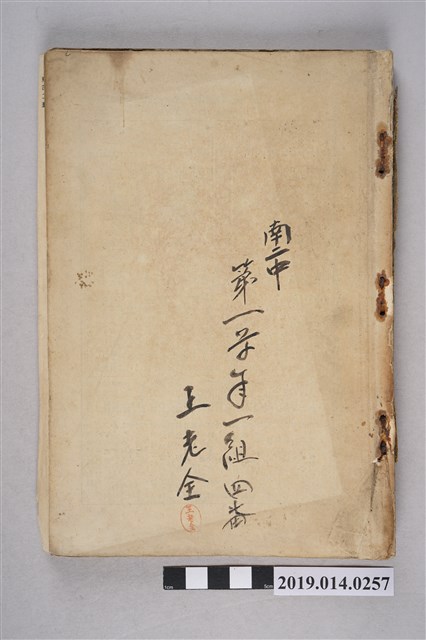 南二中
第一学年一組四番
王老全
1cm
5cm
2019.014.0257